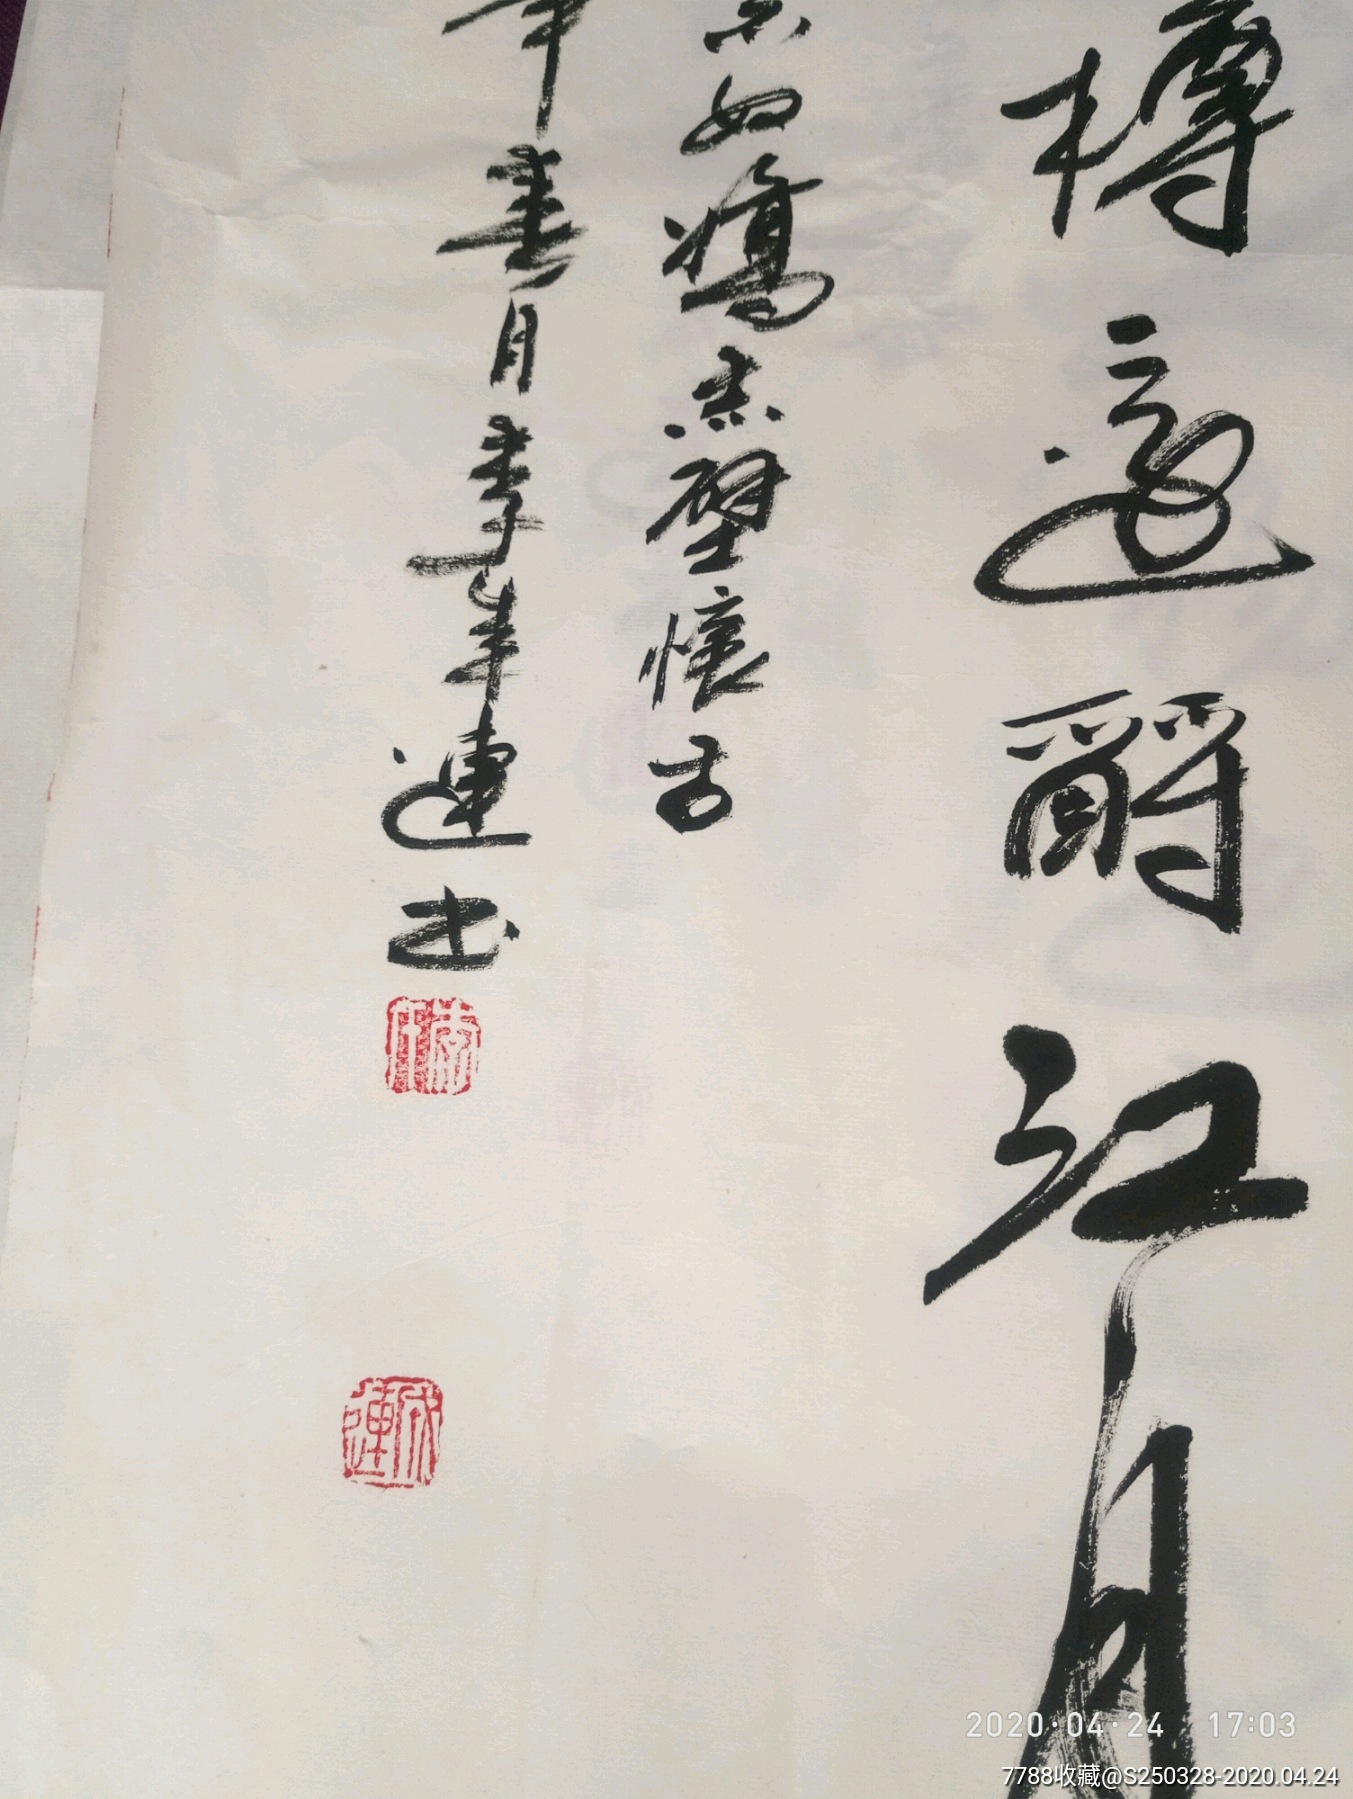 樽還酹江月
念奴嬌赤壁懷古
年春月李年連书
2020·04·24 17:03
7788收藏@S250328-2020.04.24